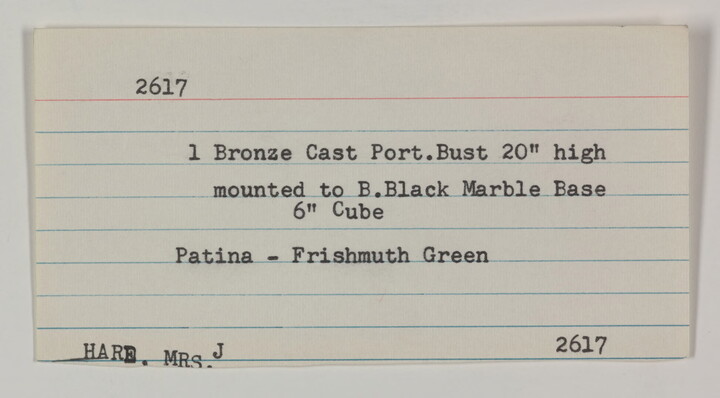 2617
1 Bronze Cast Port.Bust 20" high
mounted to B.Black Marble Base
6" Cube
Patina - Frishmuth Green
HARE. MRS.J
2617